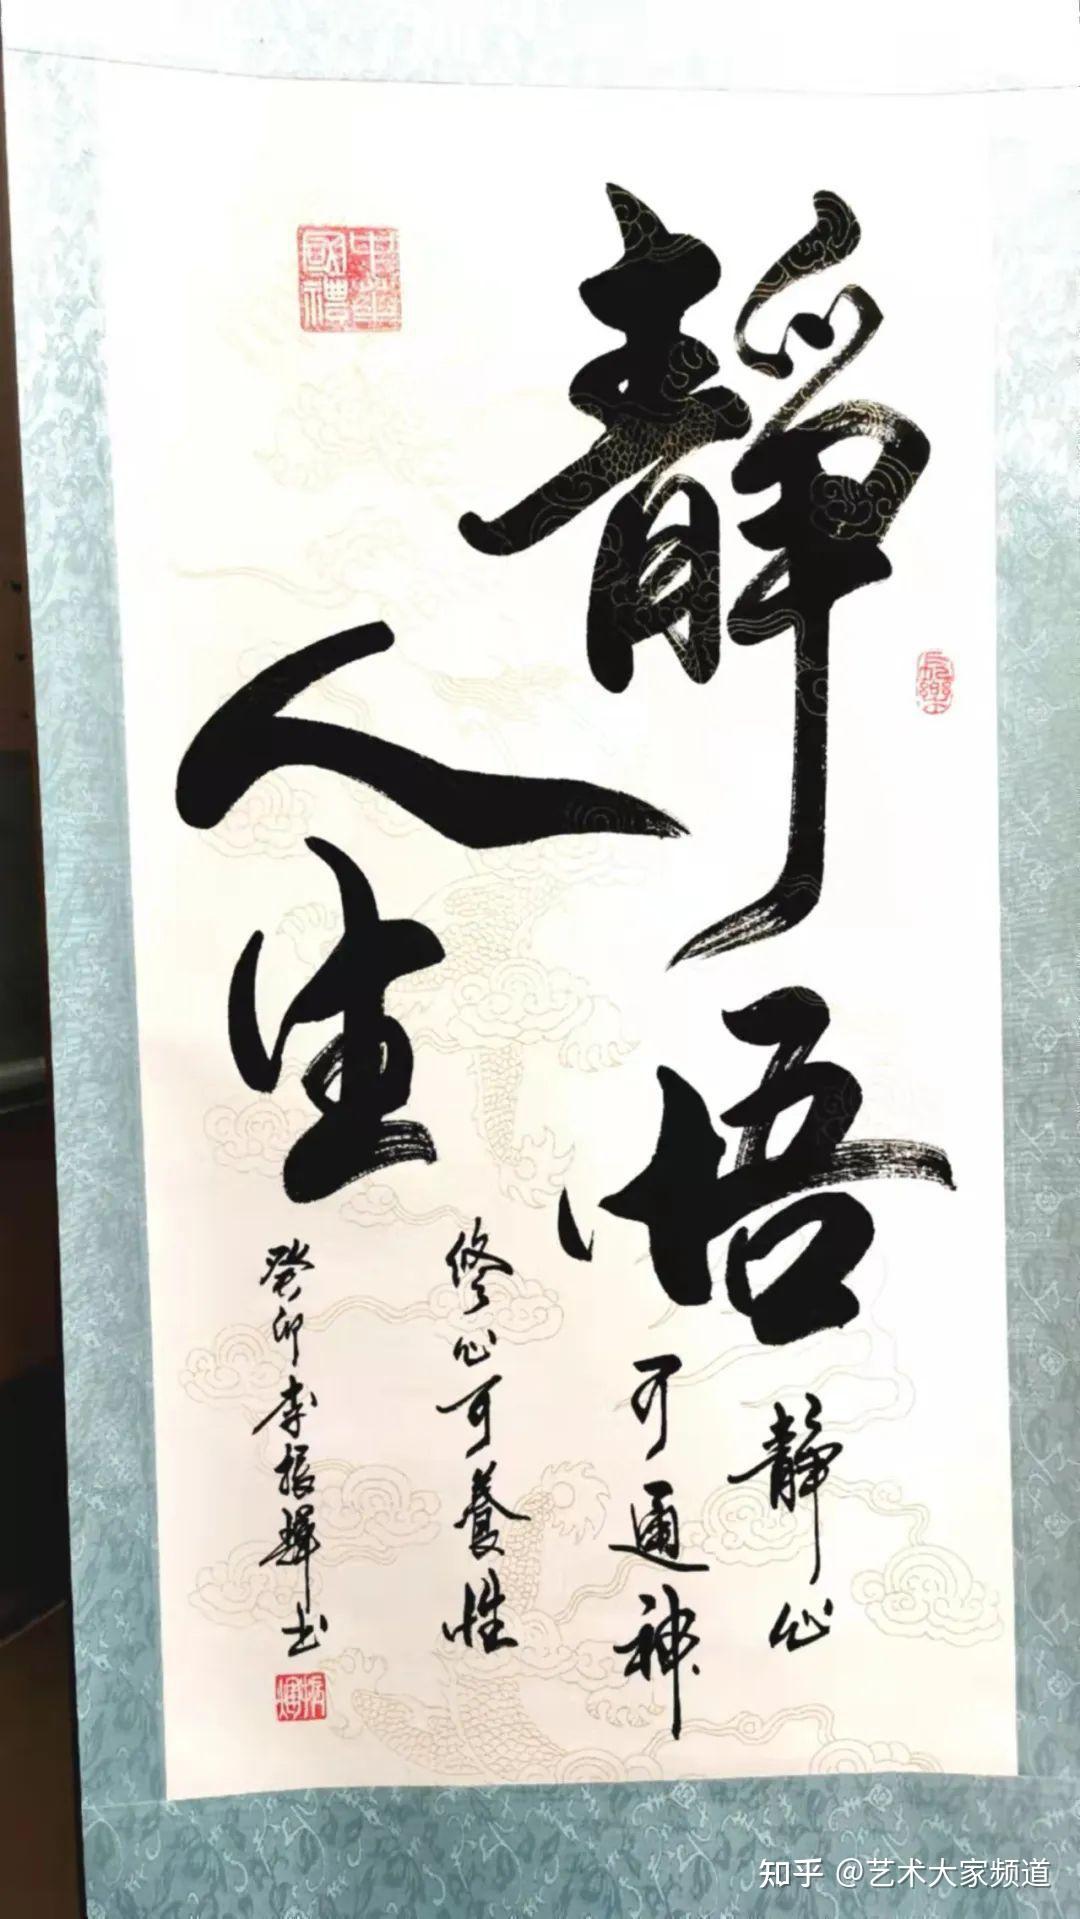 靜悟
人生
靜心
可通神
修心可養性
癸卯李振輝书
中華國禮
長樂
振輝
知乎 @艺术大家频道